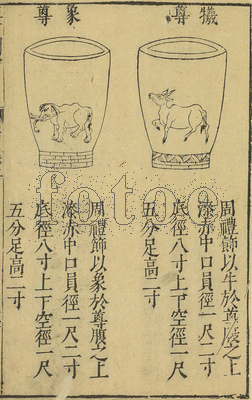 犧尊
周禮飾以牛於尊腹之上
漆赤中口員徑一尺二寸
底徑八寸上下空徑一尺
五分足高二寸
象尊
周禮飾以象於尊腹之上
漆赤中口員徑一尺二寸
底徑八寸上下空徑一尺
五分足高二寸
fotoe